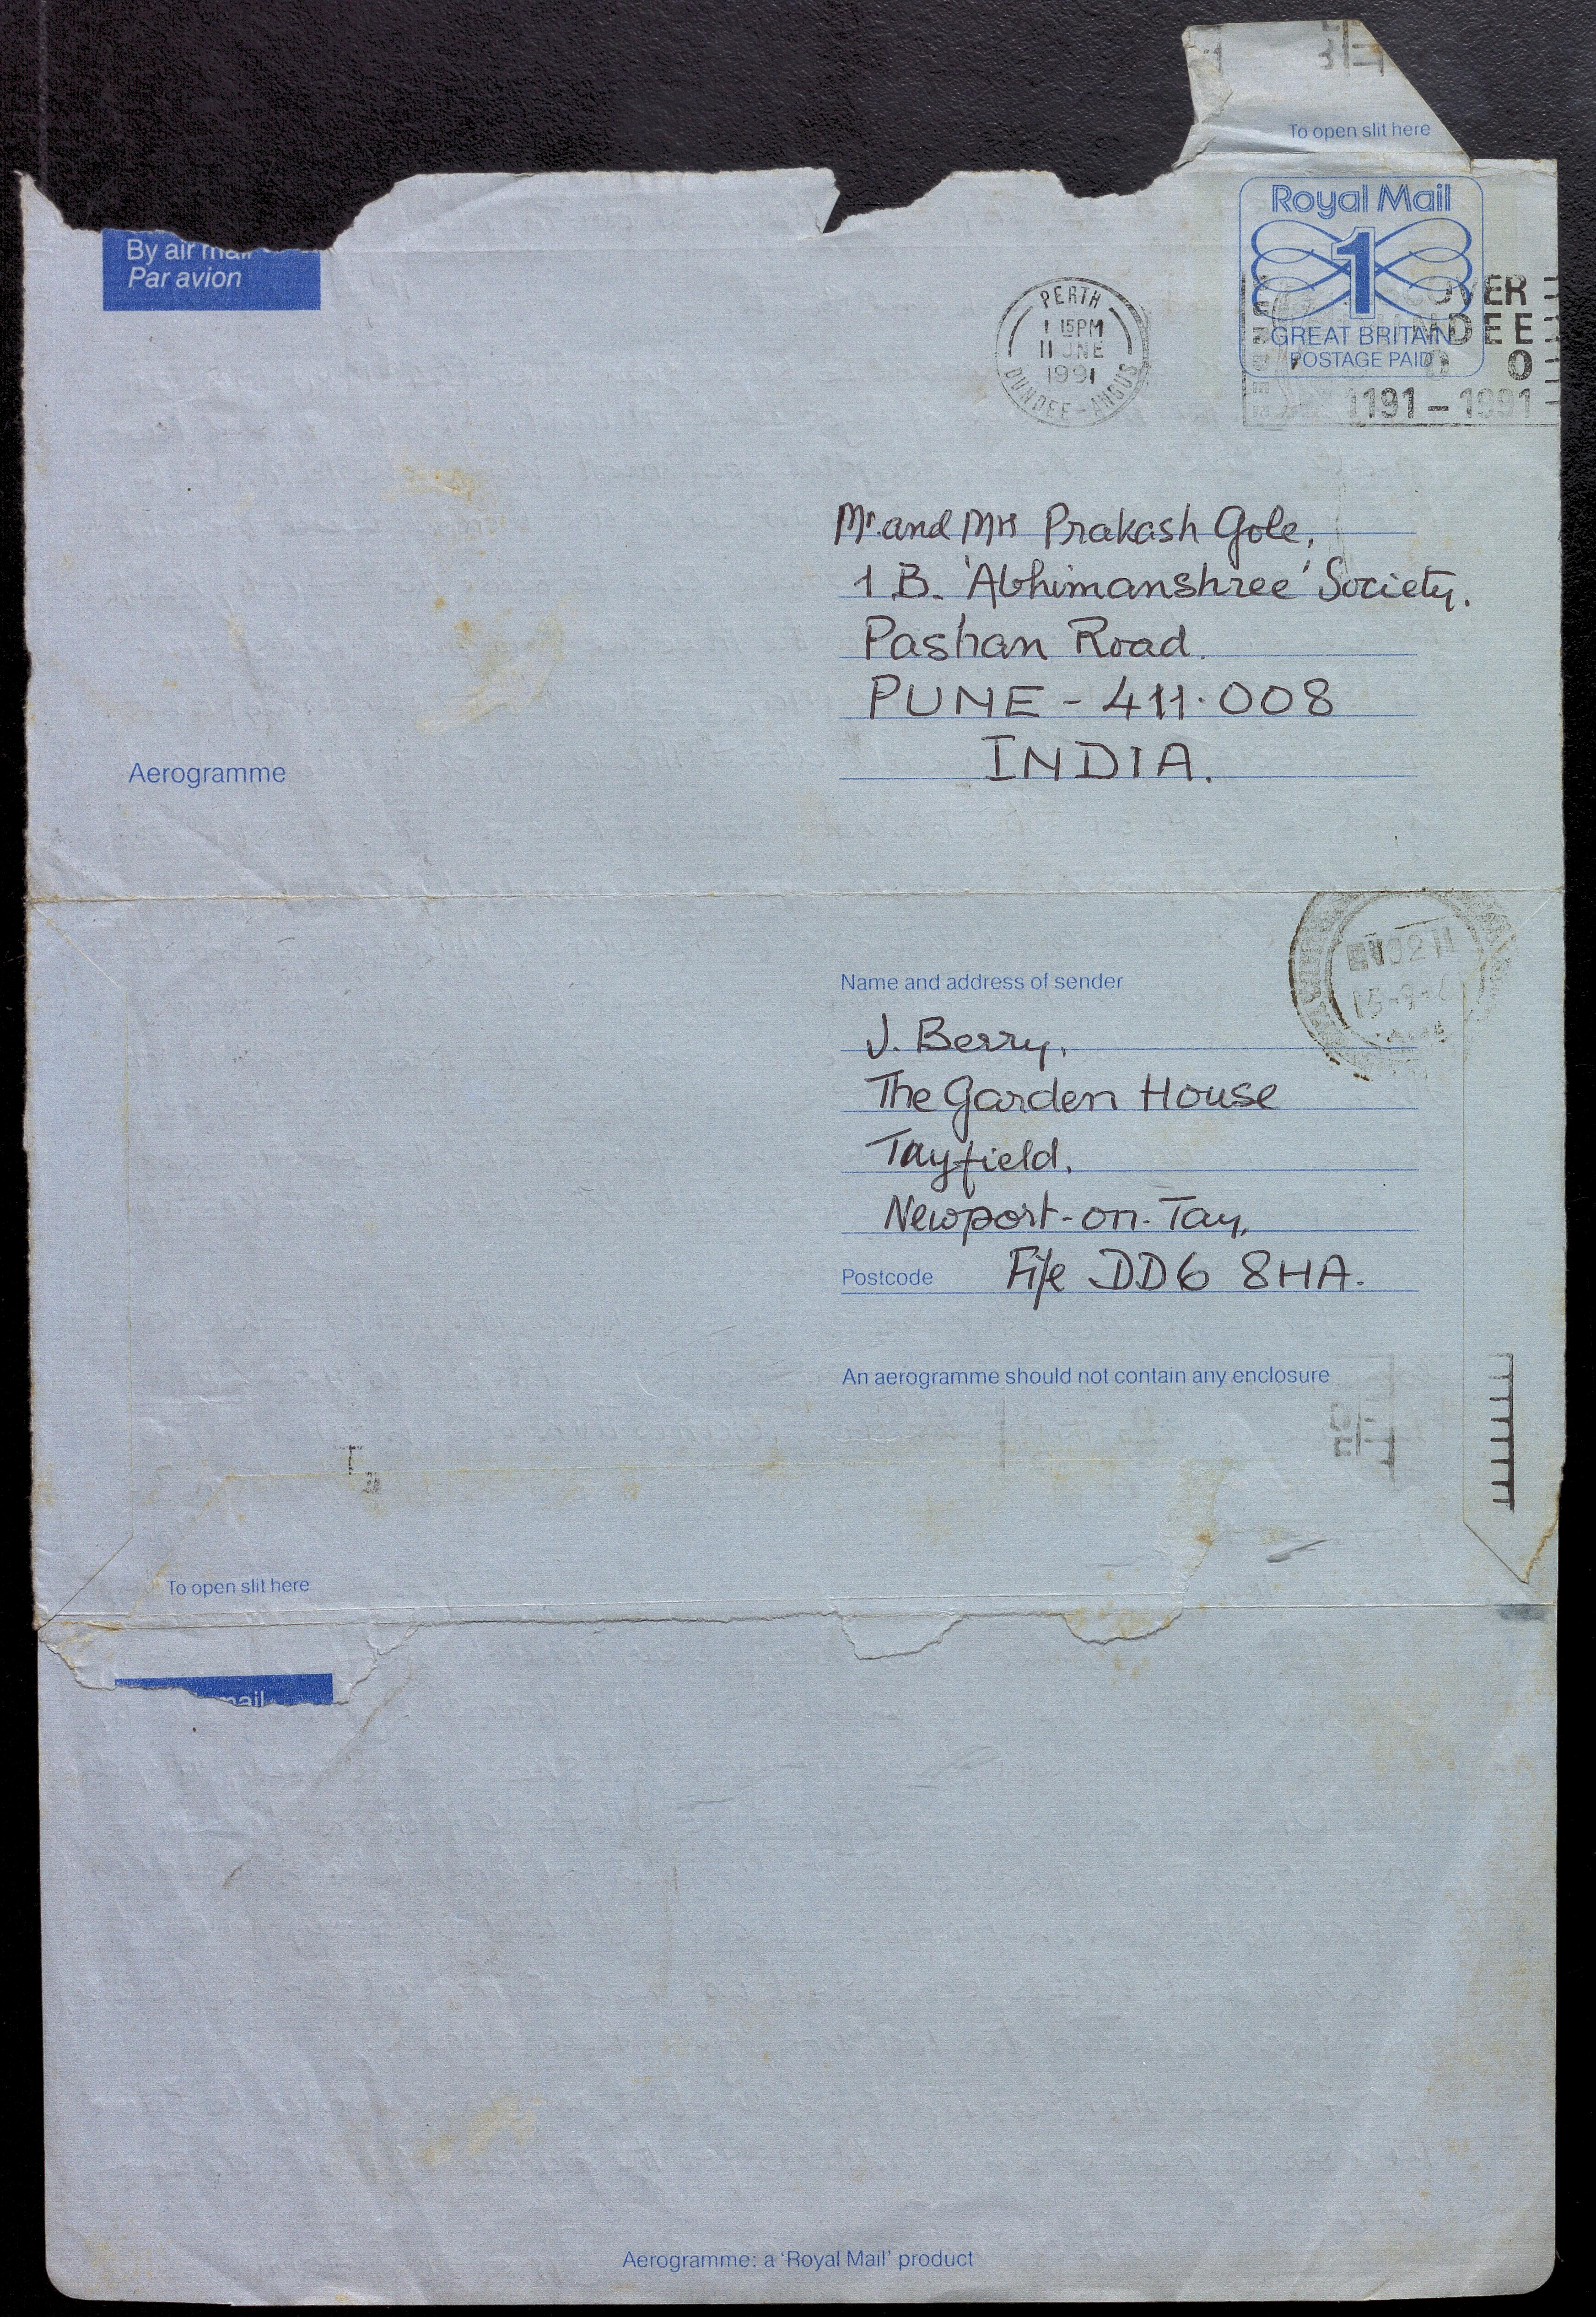 To open slit here
Royal Mail
1
GREAT BRITAIN
POSTAGE PAID
By air mail
Par avion
PERTH
1 15PM
11 JNE
1991
DUNDEE-ANGUS
1191-1991
Mr. and Mrs Prakash Gole,
1 B. 'Abhimanshree' Society.
Pashan Road.
PUNE - 411.008
INDIA.
Aerogramme
Name and address of sender
J. Berry,
The Garden House
Tayfield,
Newport-on-Tay,
Postcode Fife DD6 8HA.
An aerogramme should not contain any enclosure
To open slit here
mail
Aerogramme: a 'Royal Mail' product